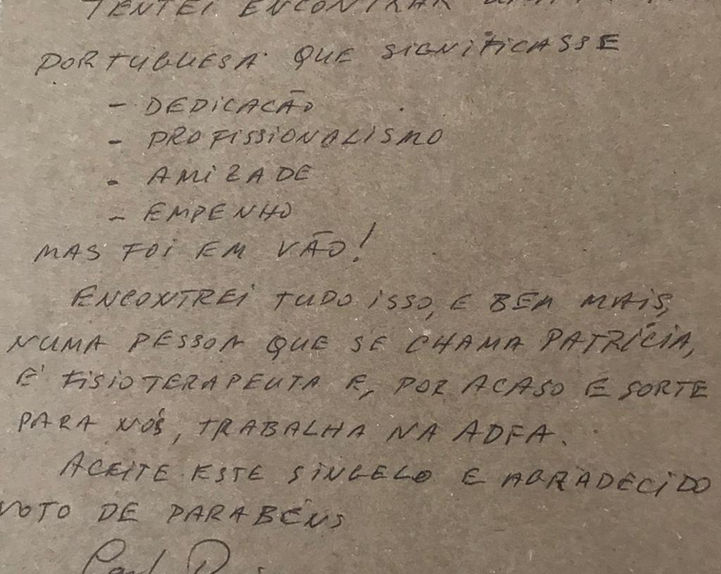 TENTEI ENCONTRAR
PORTUGUESA QUE SIGNIFICASSE
- DEDICAÇÃO
- PROFISSIONALISMO
- AMIZADE
- EMPENHO
MAS FOI EM VÃO!
ENCONTREI TUDO ISSO, E BEM MAIS,
NUMA PESSOA QUE SE CHAMA PATRÍCIA,
É FISIOTERAPEUTA E, POR ACASO E SORTE
PARA NÓS, TRABALHA NA ADFA.
ACEITE ESTE SINGELO E AGRADECIDO
VOTO DE PARABÉNS